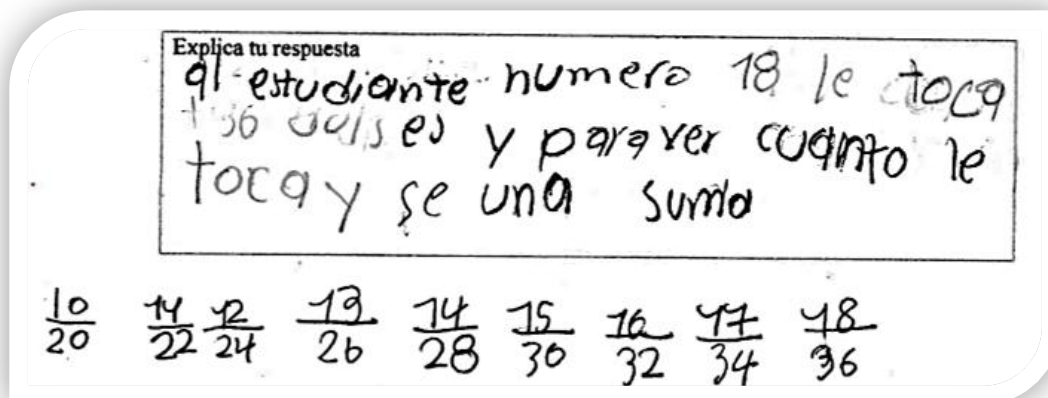 Explica tu respuesta
al estudiante numero 18 le toca
36 dulses y para ver cuanto le
toca y se una suma
10/20 11/22 12/24 13/26 14/28 15/30 16/32 17/34 18/36